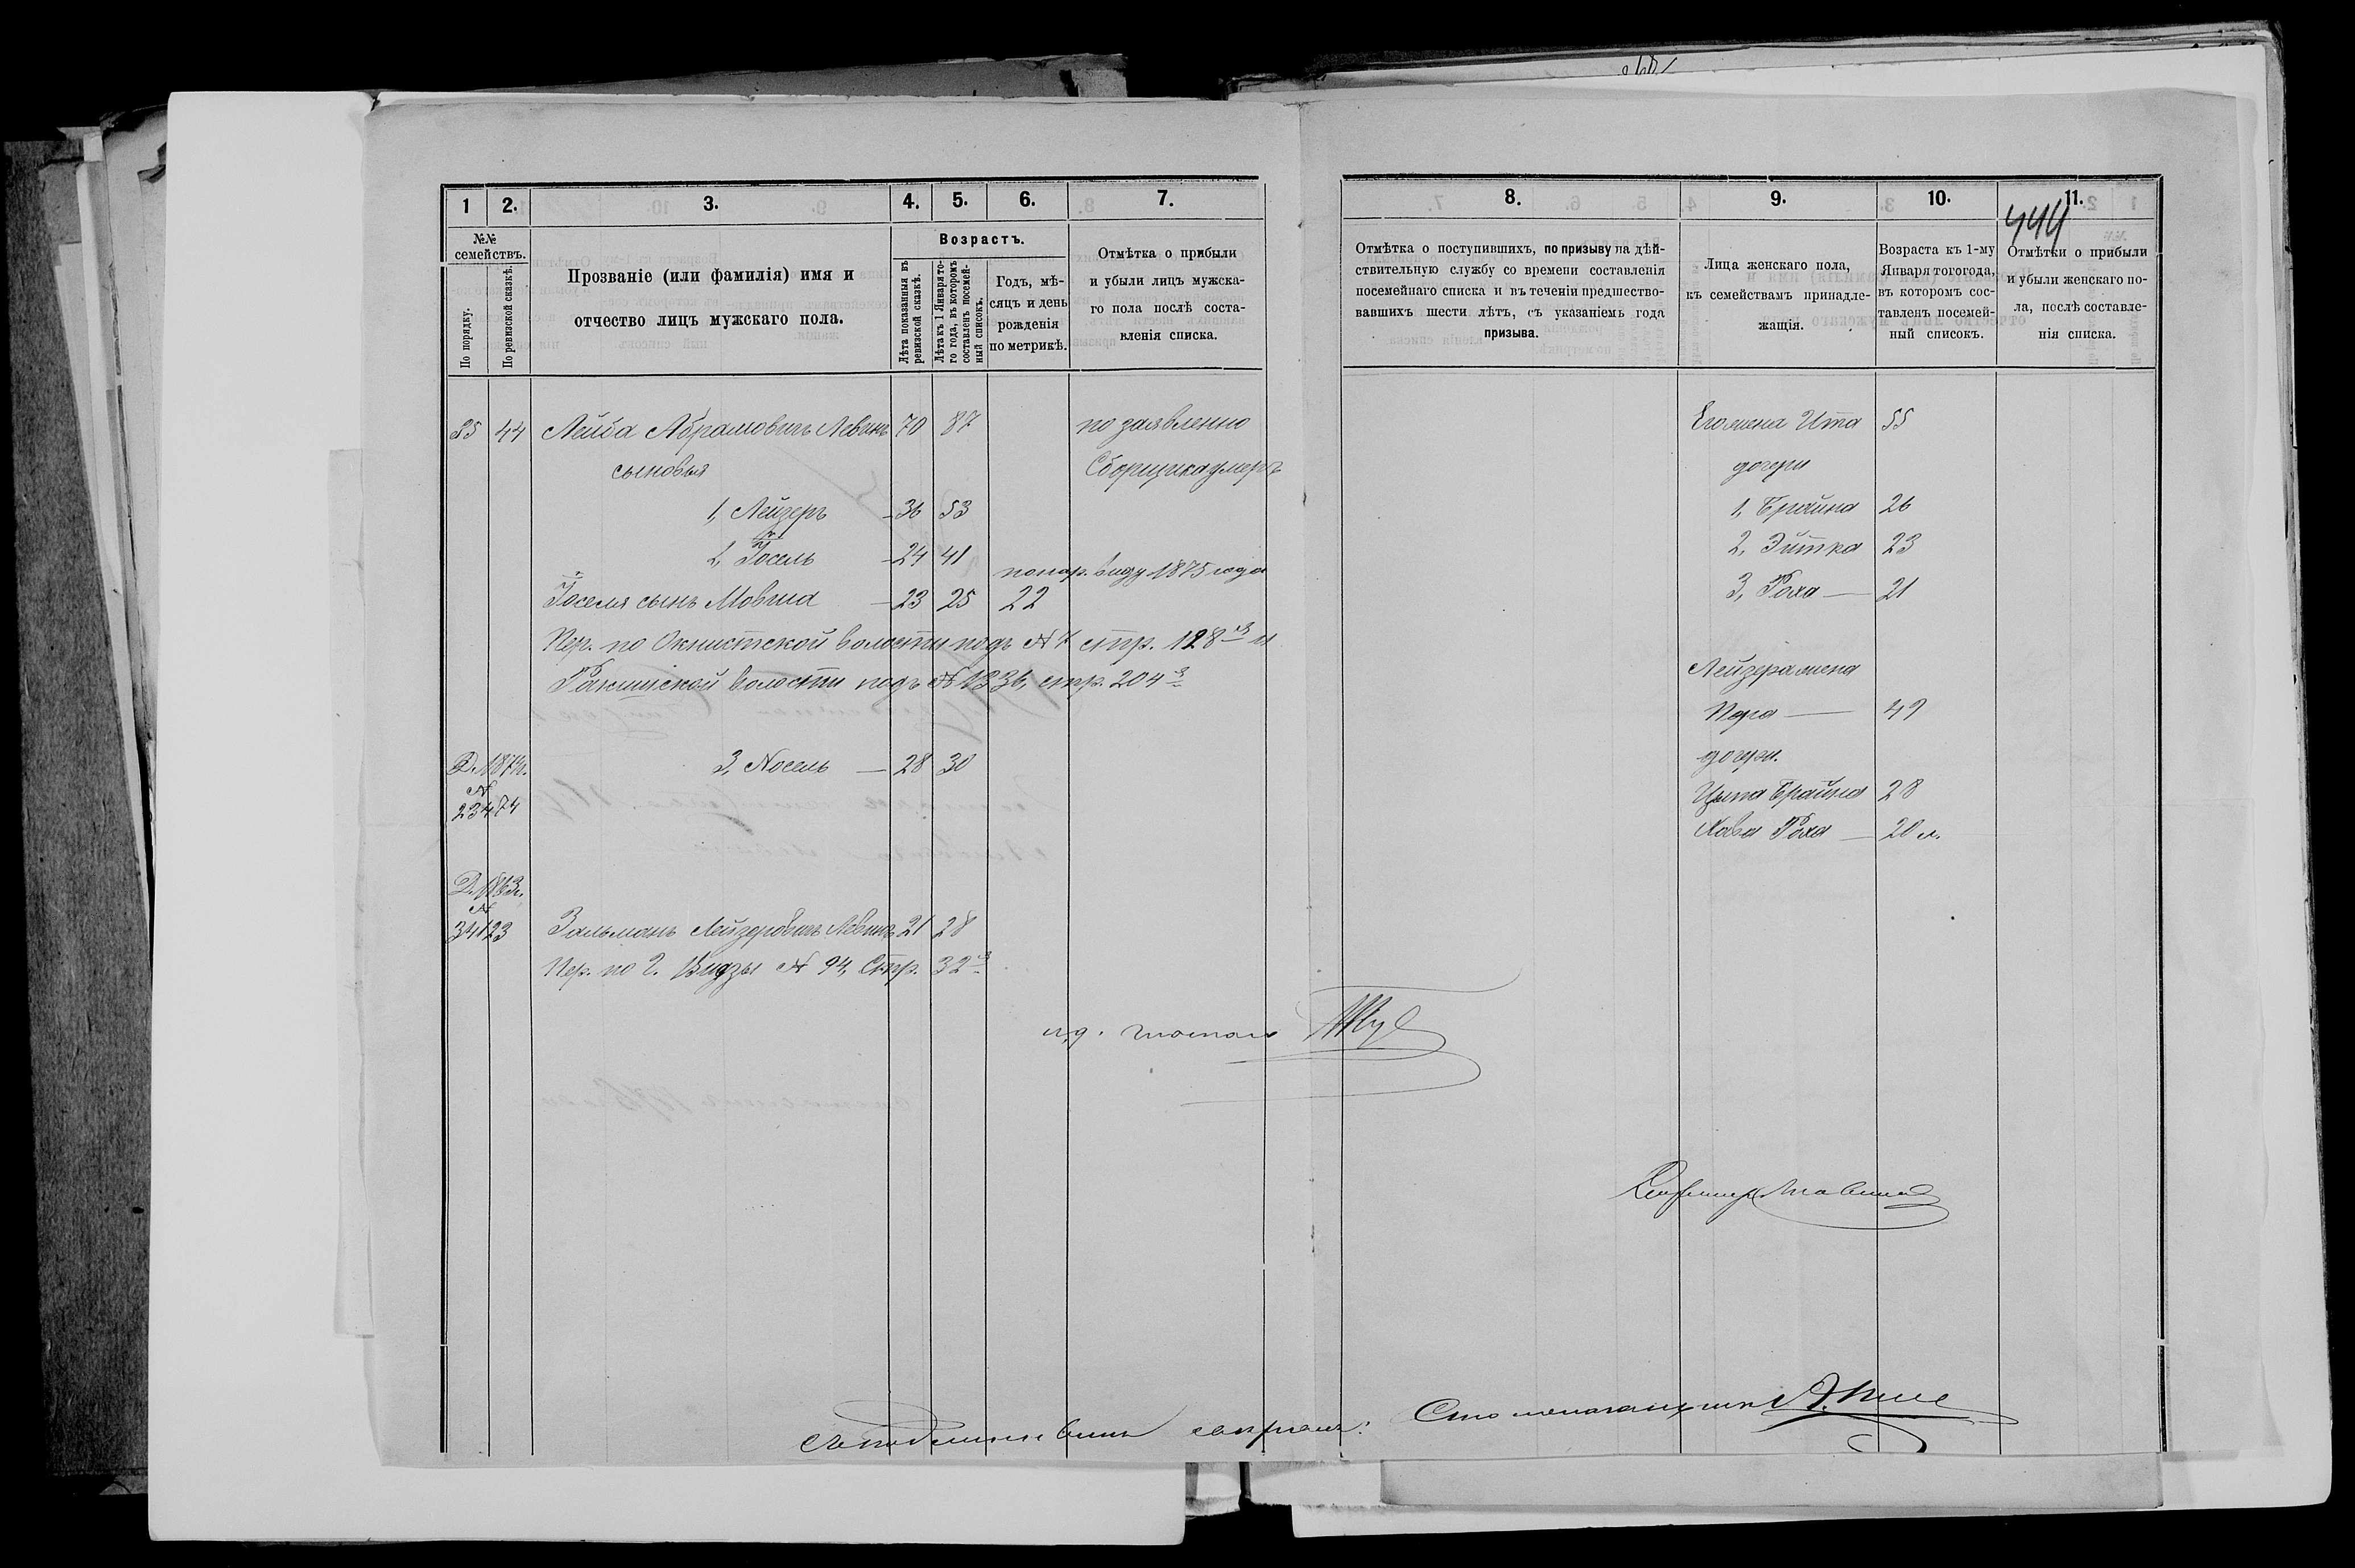 1
2.
3.
4.
5.
6.
7.
№№ семействъ.
По порядку.
По ревизской сказкѣ.
Прозваніе (или фамилія) имя и
отчество лицъ мужскаго пола.
Возрастъ.
Лѣта показанныя въ
ревизской сказкѣ.
Лѣта къ 1 Января то-
го года, въ которомъ
составленъ посемей-
ный списокъ.
Годъ, мѣ-
сяцъ и день
рожденія
по метрикѣ.
Отмѣтка о прибыли
и убыли лицъ мужска-
го пола послѣ соста-
вленія списка.
85 44 Лейба Абрамовичъ Левинъ 70 87 по заявленію
сыновья Сборщика умеръ
1, Лейзеръ — 36 53
2, Іосель — 24 41
по нар. виду 1875 года
Іоселя сынъ Мовша — 23 25 22
Пер. по Окнистской волости подъ № 7 стр. 128 и
Ракишской волости подъ № 1336, стр. 204
Д. 1874г. 3, Носель — 28 30
№
23474
Д. 1863г.
№
34123 Зальманъ Лейзеровичъ Левинъ 21 28
Пер. по г. Видзы № 94, Стр. 32
8.
9.
10.
11.
444
Отмѣтка о поступившихъ, по призыву на дѣй-
ствительную службу со времени составленія
посемейнаго списка и въ теченіи предшество-
вавшихъ шести лѣтъ, съ указаніемъ года
призыва.
Лица женскаго пола,
къ семействамъ принадле-
жащія.
Возраста къ 1-му
Января того года,
въ которомъ сос-
тавленъ посемей-
ный списокъ.
Отмѣтки о прибыли
и убыли женскаго по-
ла, послѣ составле-
нія списка.
Его жена Ита 55
дочери
1, Брайна 26
2, Эйтка 23
3, Роха — 21
Лейзера жена
Пера — 49
дочери.
Цыпа Брайна 28
Хава Роха — 20 л.